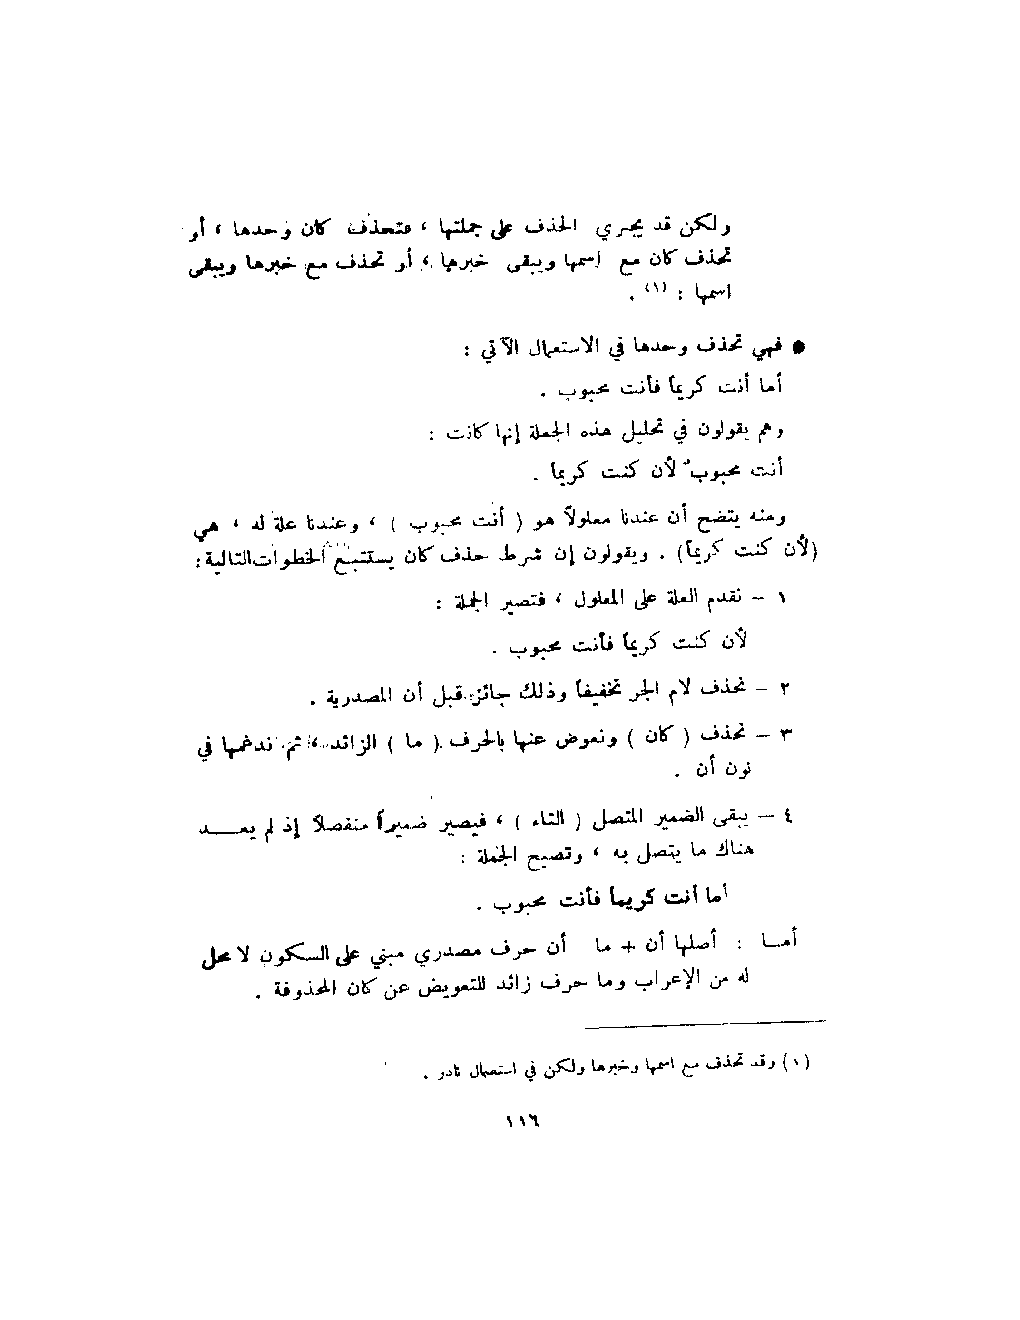 ولكن قد يجري الحذف على جملتها ، فتحذف كان وحدها ، أو
تحذف كان مع اسمها ويبقى خبرها ، أو تحذف مع خبرها ويبقى
اسمها : (١) .
● فهي تحذف وحدها في الاستعمال الآتي :
أما أنت كريماً فأنت محبوب .
وهم يقولون في تحليل هذه الجملة إنها كانت :
أنت محبوبٌ لأن كنت كريماً .
ومنه يتضح أن عندنا معلولاً هو ( أنت محبوب ) ، وعندنا علة له ، هي
(لأن كنت كريماً) . ويقولون إن شرط حذف كان يستتبع الخطوات التالية :
١ – نقدم العلة على المعلول ، فتصير الجملة :
لأن كنت كريماً فأنت محبوب .
٢ – نحذف لام الجر تخفيفاً وذلك جائز قبل أن المصدرية .
٣ – نحذف ( كان ) ونعوض عنها بالحرف ( ما ) الزائد ، ثم ندغمها في
نون أن .
٤ – يبقى الضمير المتصل ( التاء ) ، فيصير ضميراً منفصلاً إذ لم يعـــد
هناك ما يتصل به ، وتصبح الجملة :
أما أنت كريماً فأنت محبوب .
أمــا : أصلها أن + ما أن حرف مصدري مبني على السكون لا محل
له من الإعراب وما حرف زائد للتعويض عن كان المحذوفة .
(١) وقد تحذف مع اسمها وخبرها ولكن في استعمال نادر .
١١٦